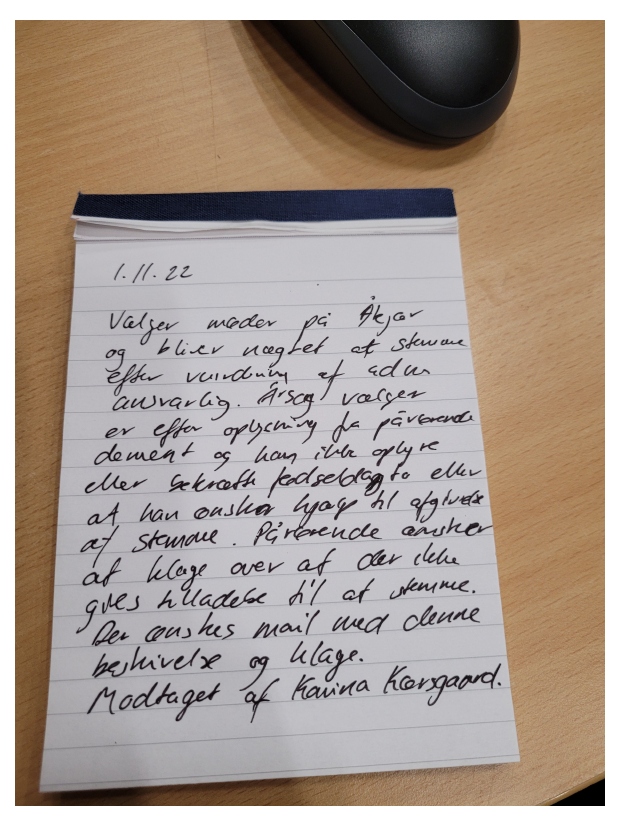 1.11.22
Vælger møder på Åkjær
og bliver nægtet at stemme
efter vurdning af adm
ansvarlig. Årsag vælger
er efter oplysning fra pårørende
dement og kan ikke oplyse
eller bekræfte fødseldagto eller
at han ønsker hjælp til afgivelse
af stemme. Pårørende ønsker
at klage over at der ikke
gives tilladelse til at stemme.
Der ønskes mail med denne
beskrivelse og klage.
Modtaget af Karina Kærsgaard.